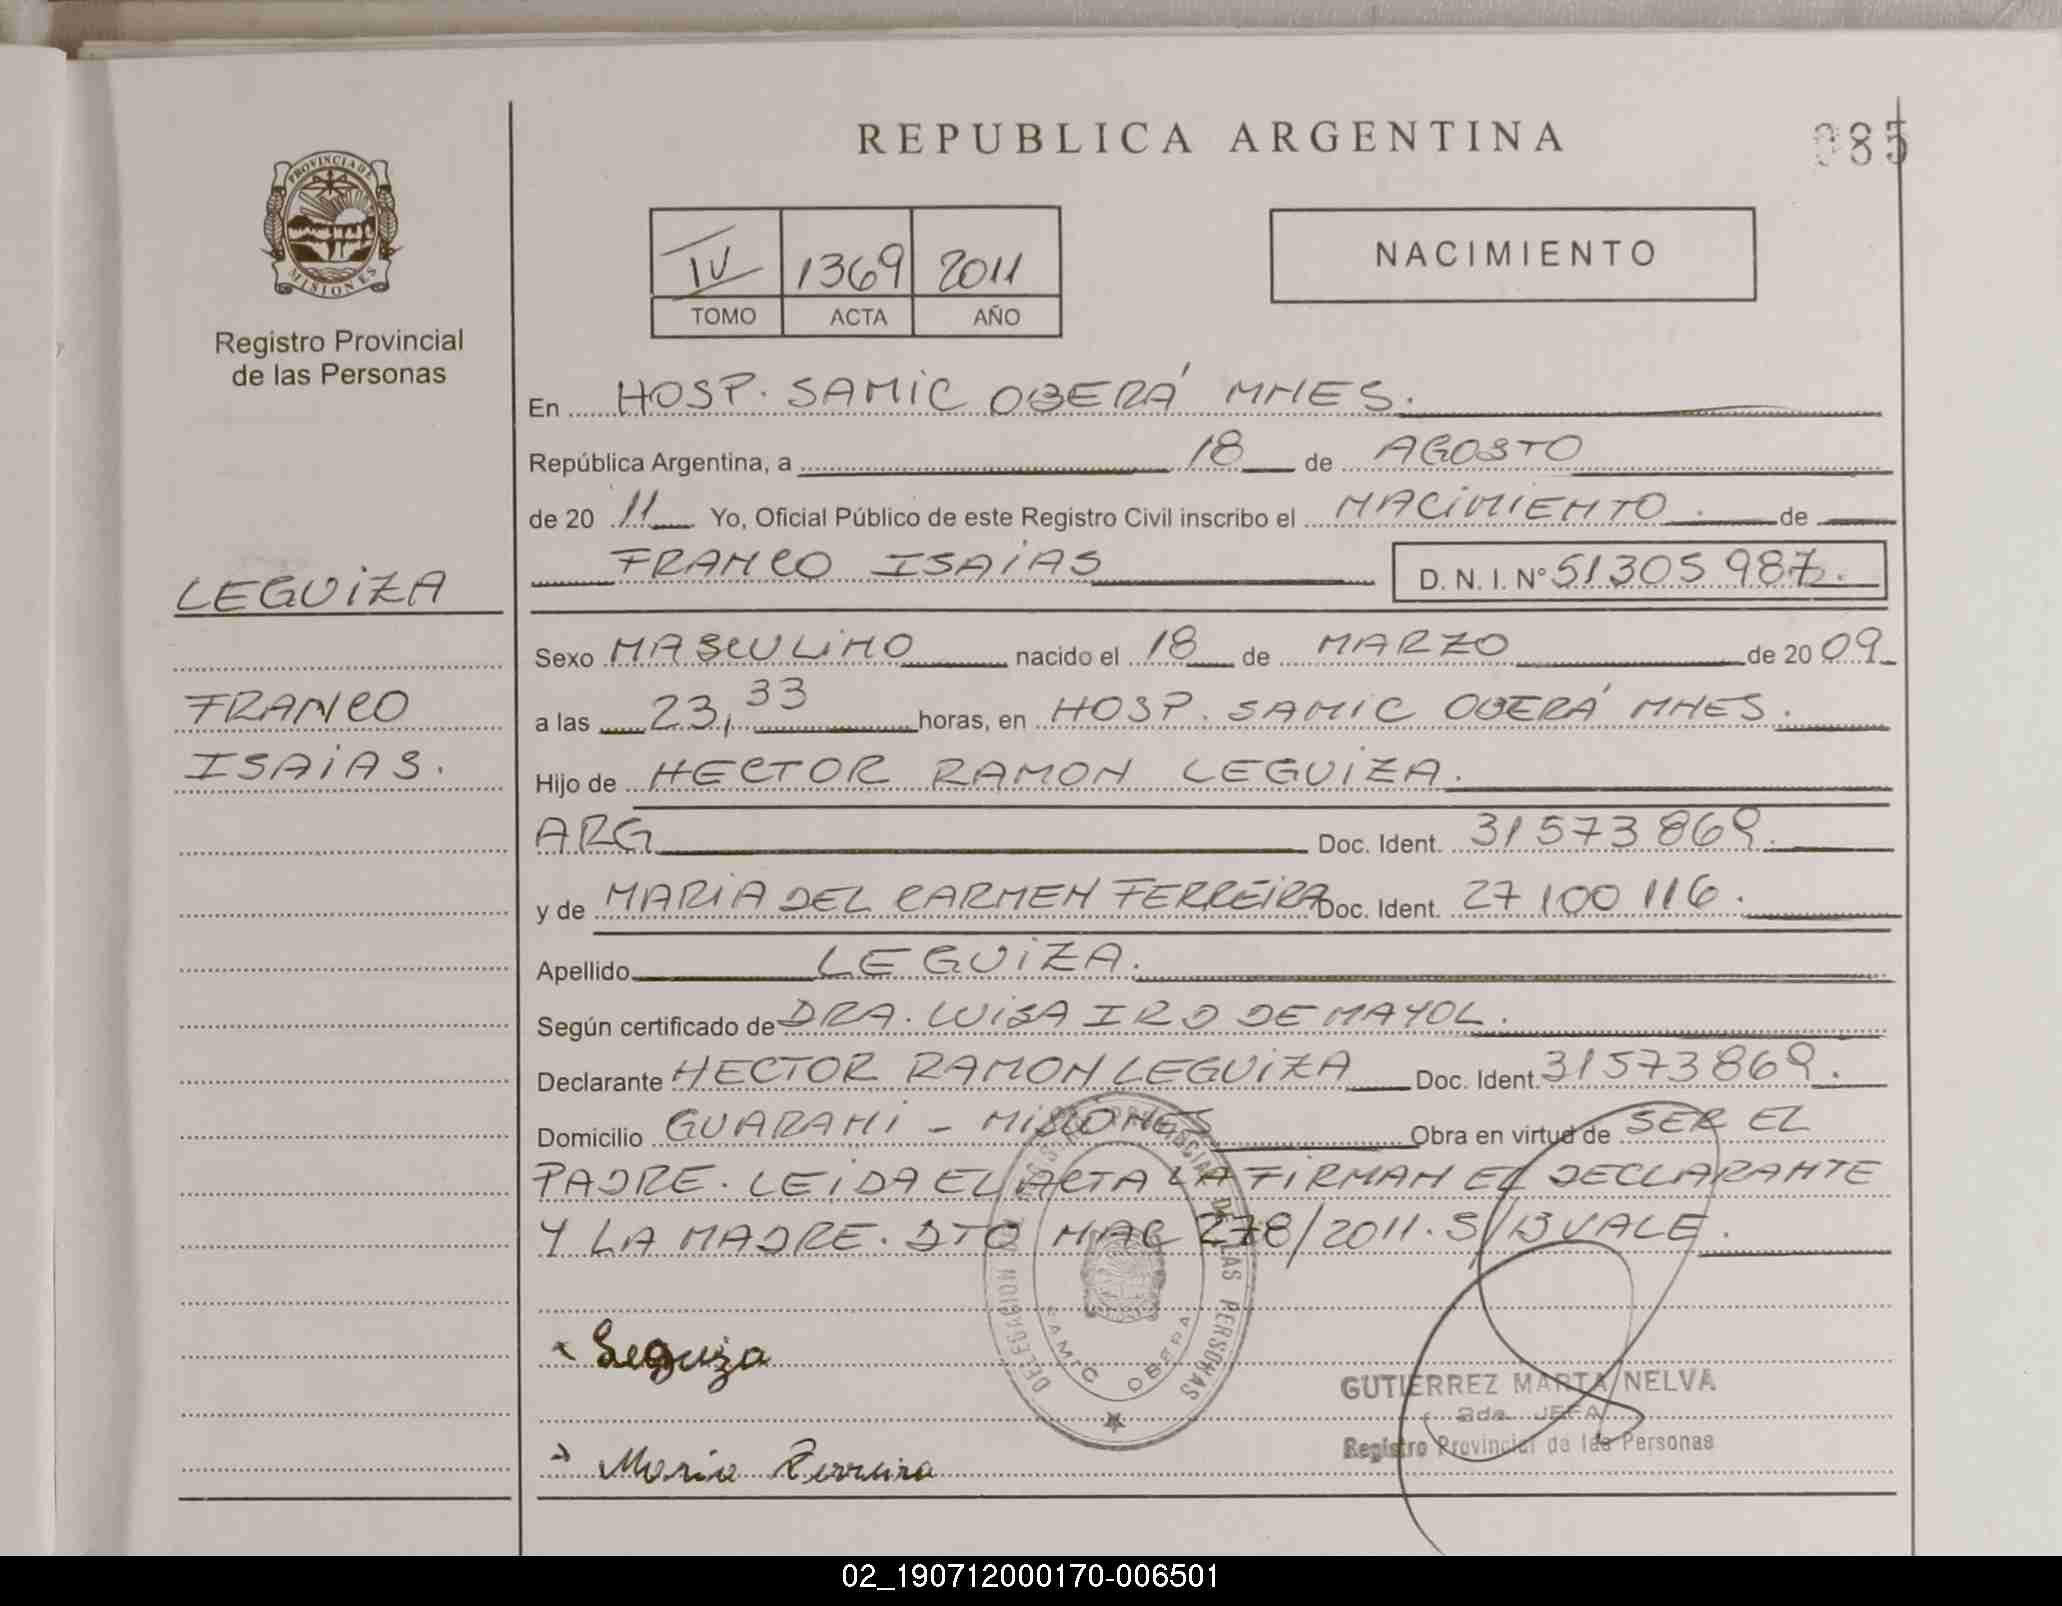 REPUBLICA ARGENTINA
085
PROVINCIA DE MISIONES
Registro Provincial
de las Personas
IV 1369 2011
TOMO ACTA AÑO
NACIMIENTO
En HOSP. SAMIC OBERÁ MNES.
República Argentina, a 18 de AGOSTO
de 20 11 Yo, Oficial Público de este Registro Civil inscribo el NACIMIENTO. de
FRANCO ISAIAS D. N. I. N° 51305987.
LEGUIZA
FRANCO
ISAIAS.
Sexo MASCULINO nacido el 18 de MARZO de 20 09
a las 23,33 horas, en HOSP. SAMIC OBERÁ MNES.
Hijo de HECTOR RAMON LEGUIZA.
ARG Doc. Ident. 31573869.
y de MARIA DEL CARMEN FERREIRA Doc. Ident. 27100116.
Apellido LEGUIZA.
Según certificado de DRA. LUISA IRO DE MAYOL.
Declarante HECTOR RAMON LEGUIZA Doc. Ident. 31573869.
Domicilio GUARANI - MISIONES Obra en virtud de SER EL
PADRE. LEIDA EL ACTA LA FIRMAN EL DECLARANTE
Y LA MADRE. DTO NAC 278/2011. S/B VALE.
DELEGACION REGISTRO PROVINCIAL DE LAS PERSONAS
SAMIC OBERA
Leguiza
GUTIERREZ MARTA NELVA
2da. JEFA
Registro Provincial de las Personas
Maria Ferreira
02_190712000170-006501